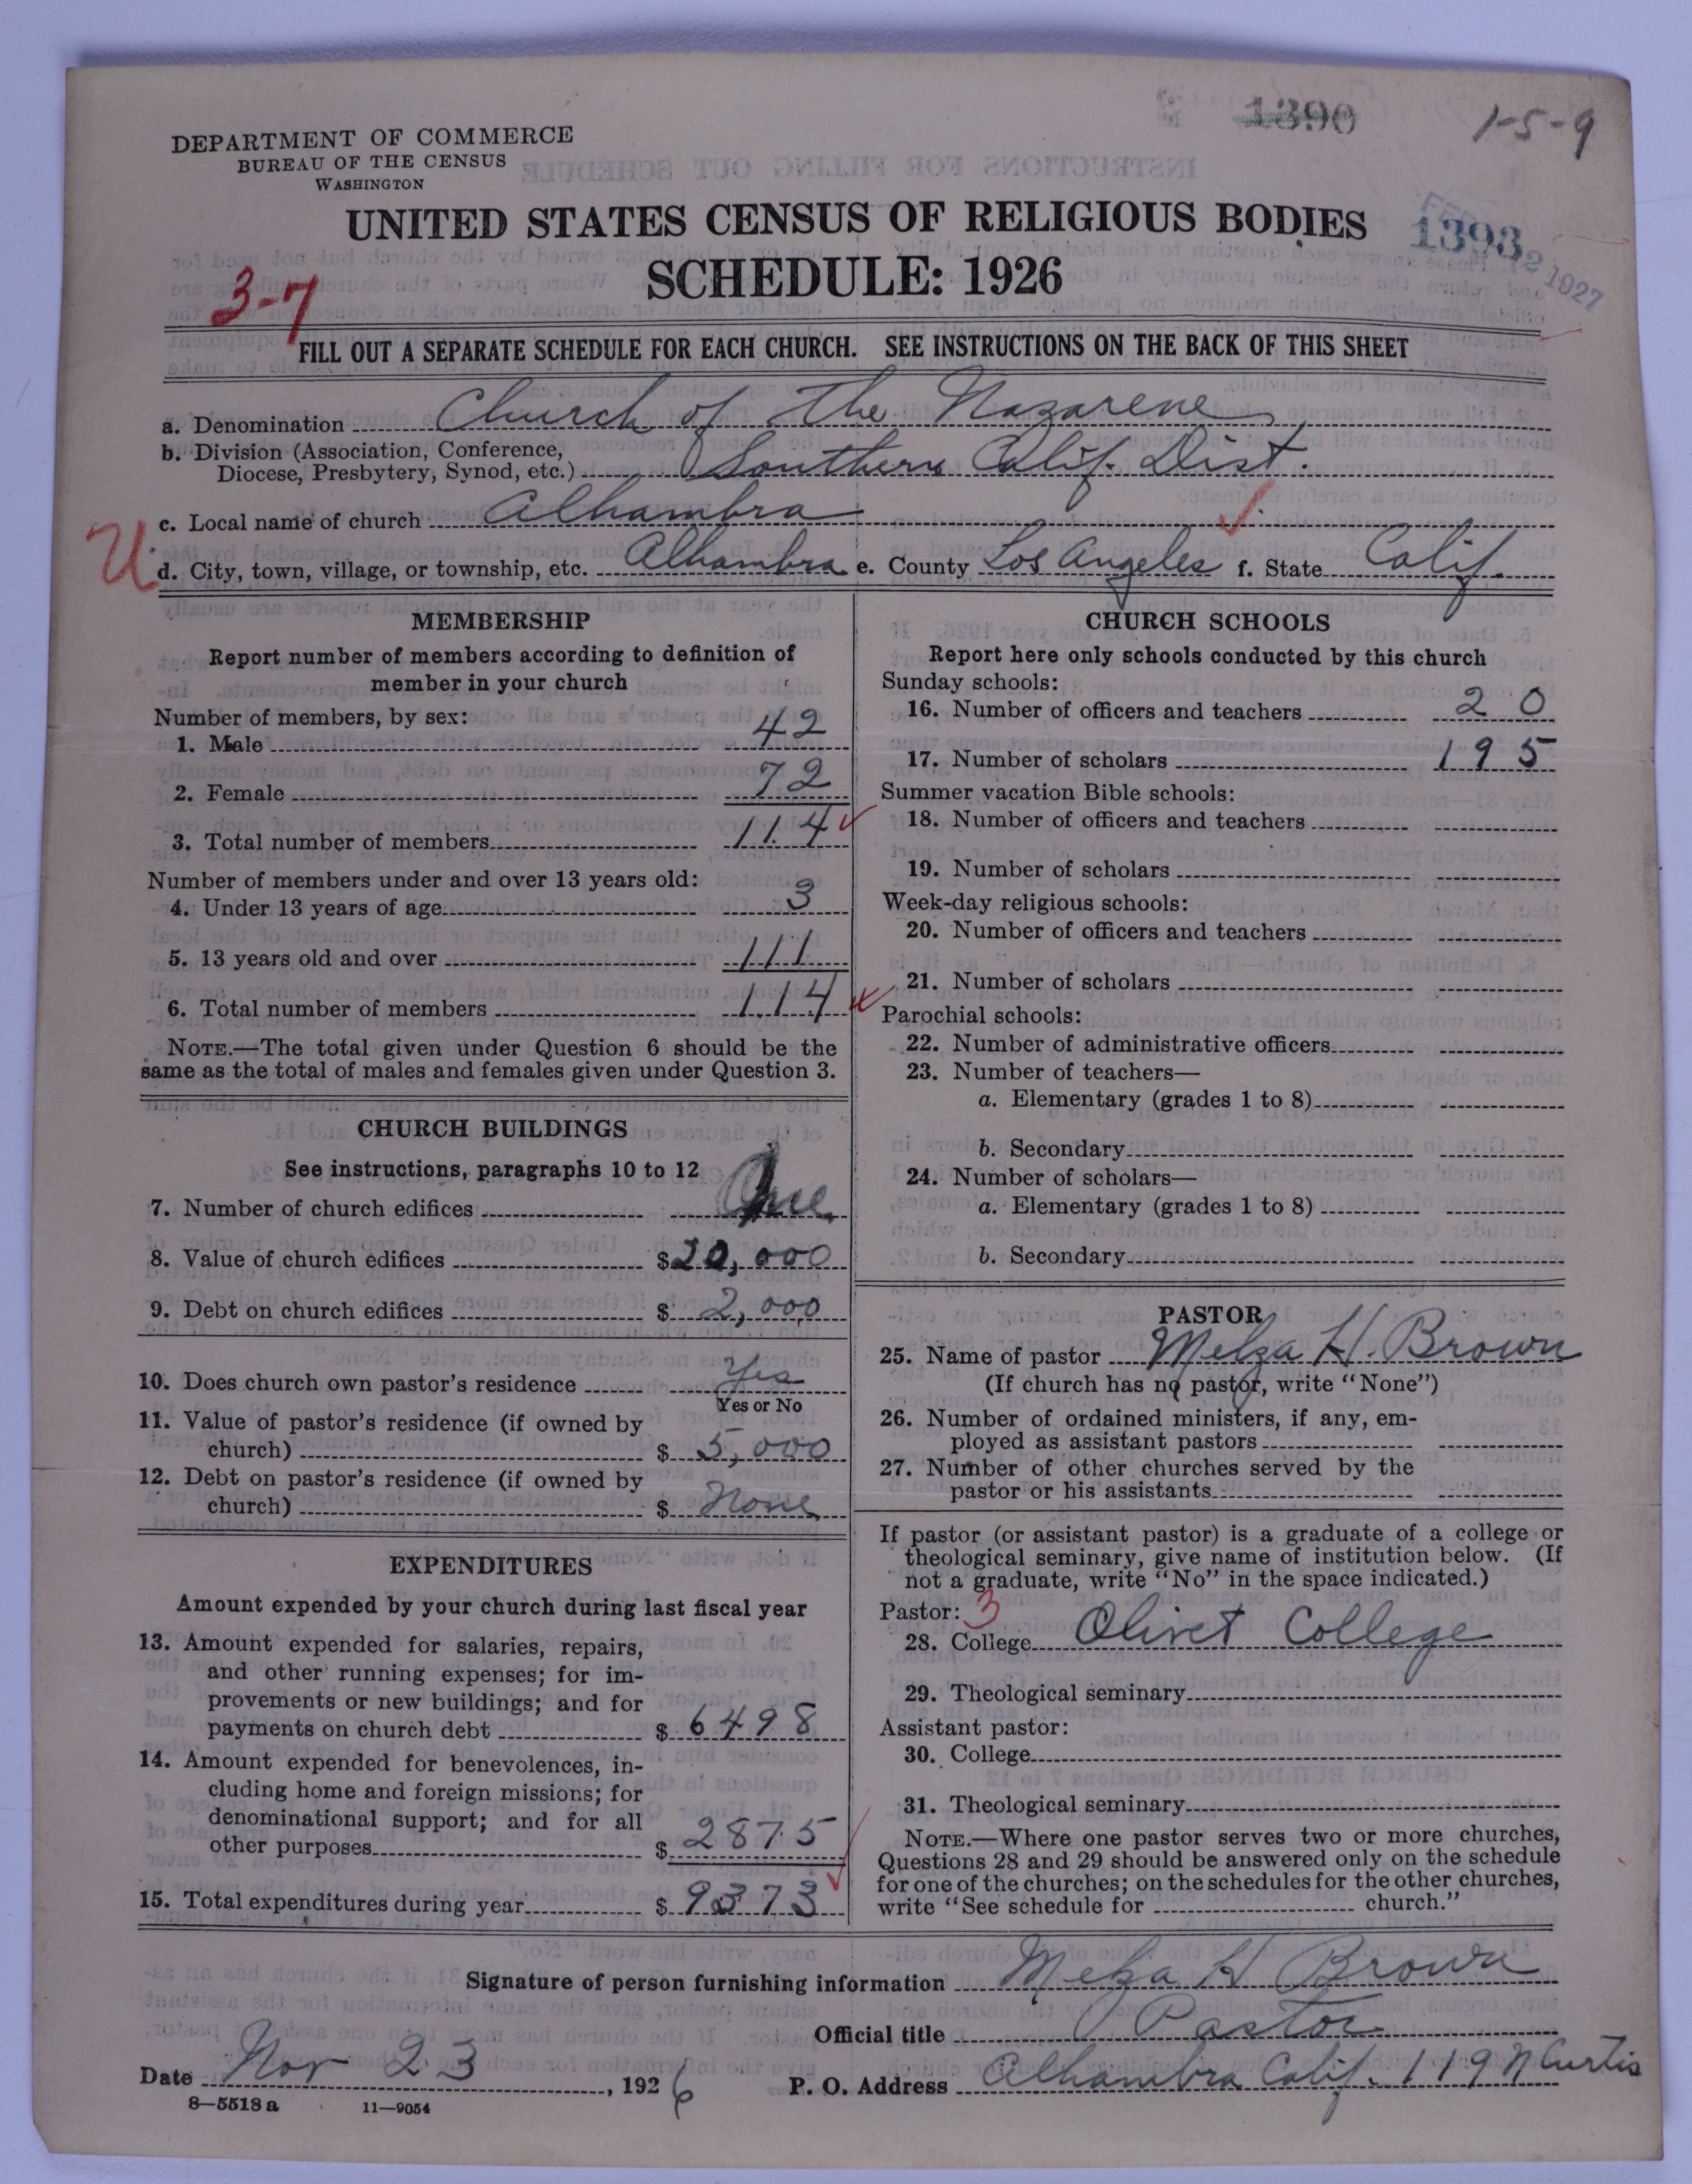 1390
1-5-9
DEPARTMENT OF COMMERCE
BUREAU OF THE CENSUS
WASHINGTON
UNITED STATES CENSUS OF RELIGIOUS BODIES
1393
FEB 12 1927
SCHEDULE: 1926
3-7
FILL OUT A SEPARATE SCHEDULE FOR EACH CHURCH. SEE INSTRUCTIONS ON THE BACK OF THIS SHEET
a. Denomination Church of the Nazarene
b. Division (Association, Conference,
Diocese, Presbytery, Synod, etc.) Southern Calif. Dist.
c. Local name of church Alhambra
U
d. City, town, village, or township, etc. Alhambra e. County Los Angeles f. State Calif.
MEMBERSHIP
Report number of members according to definition of
member in your church
Number of members, by sex:
1. Male 42
2. Female 72
3. Total number of members 114
Number of members under and over 13 years old:
4. Under 13 years of age 3
5. 13 years old and over 111
6. Total number of members 114
NOTE.—The total given under Question 6 should be the
same as the total of males and females given under Question 3.
CHURCH BUILDINGS
See instructions, paragraphs 10 to 12
7. Number of church edifices One
8. Value of church edifices $20,000
9. Debt on church edifices $ 2,000
10. Does church own pastor's residence Yes
Yes or No
11. Value of pastor's residence (if owned by
church) $ 5,000
12. Debt on pastor's residence (if owned by
church) $ None
EXPENDITURES
Amount expended by your church during last fiscal year
13. Amount expended for salaries, repairs,
and other running expenses; for im-
provements or new buildings; and for
payments on church debt $ 6498
14. Amount expended for benevolences, in-
cluding home and foreign missions; for
denominational support; and for all
other purposes $ 2875
15. Total expenditures during year $ 9373
CHURCH SCHOOLS
Report here only schools conducted by this church
Sunday schools:
16. Number of officers and teachers 20
17. Number of scholars 195
Summer vacation Bible schools:
18. Number of officers and teachers
19. Number of scholars
Week-day religious schools:
20. Number of officers and teachers
21. Number of scholars
Parochial schools:
22. Number of administrative officers
23. Number of teachers—
a. Elementary (grades 1 to 8)
b. Secondary
24. Number of scholars—
a. Elementary (grades 1 to 8)
b. Secondary
PASTOR
25. Name of pastor Melza H. Brown
(If church has no pastor, write "None")
26. Number of ordained ministers, if any, em-
ployed as assistant pastors
27. Number of other churches served by the
pastor or his assistants
If pastor (or assistant pastor) is a graduate of a college or
theological seminary, give name of institution below. (If
not a graduate, write "No" in the space indicated.)
Pastor: 3
28. College Olivet College
29. Theological seminary
Assistant pastor:
30. College
31. Theological seminary
NOTE.—Where one pastor serves two or more churches,
Questions 28 and 29 should be answered only on the schedule
for one of the churches; on the schedules for the other churches,
write "See schedule for church."
Signature of person furnishing information Melza H Brown
Official title Pastor
Date Nov 23, 1926
P. O. Address Alhambra Calif. 119 N Curtis
8—5518a 11—9054